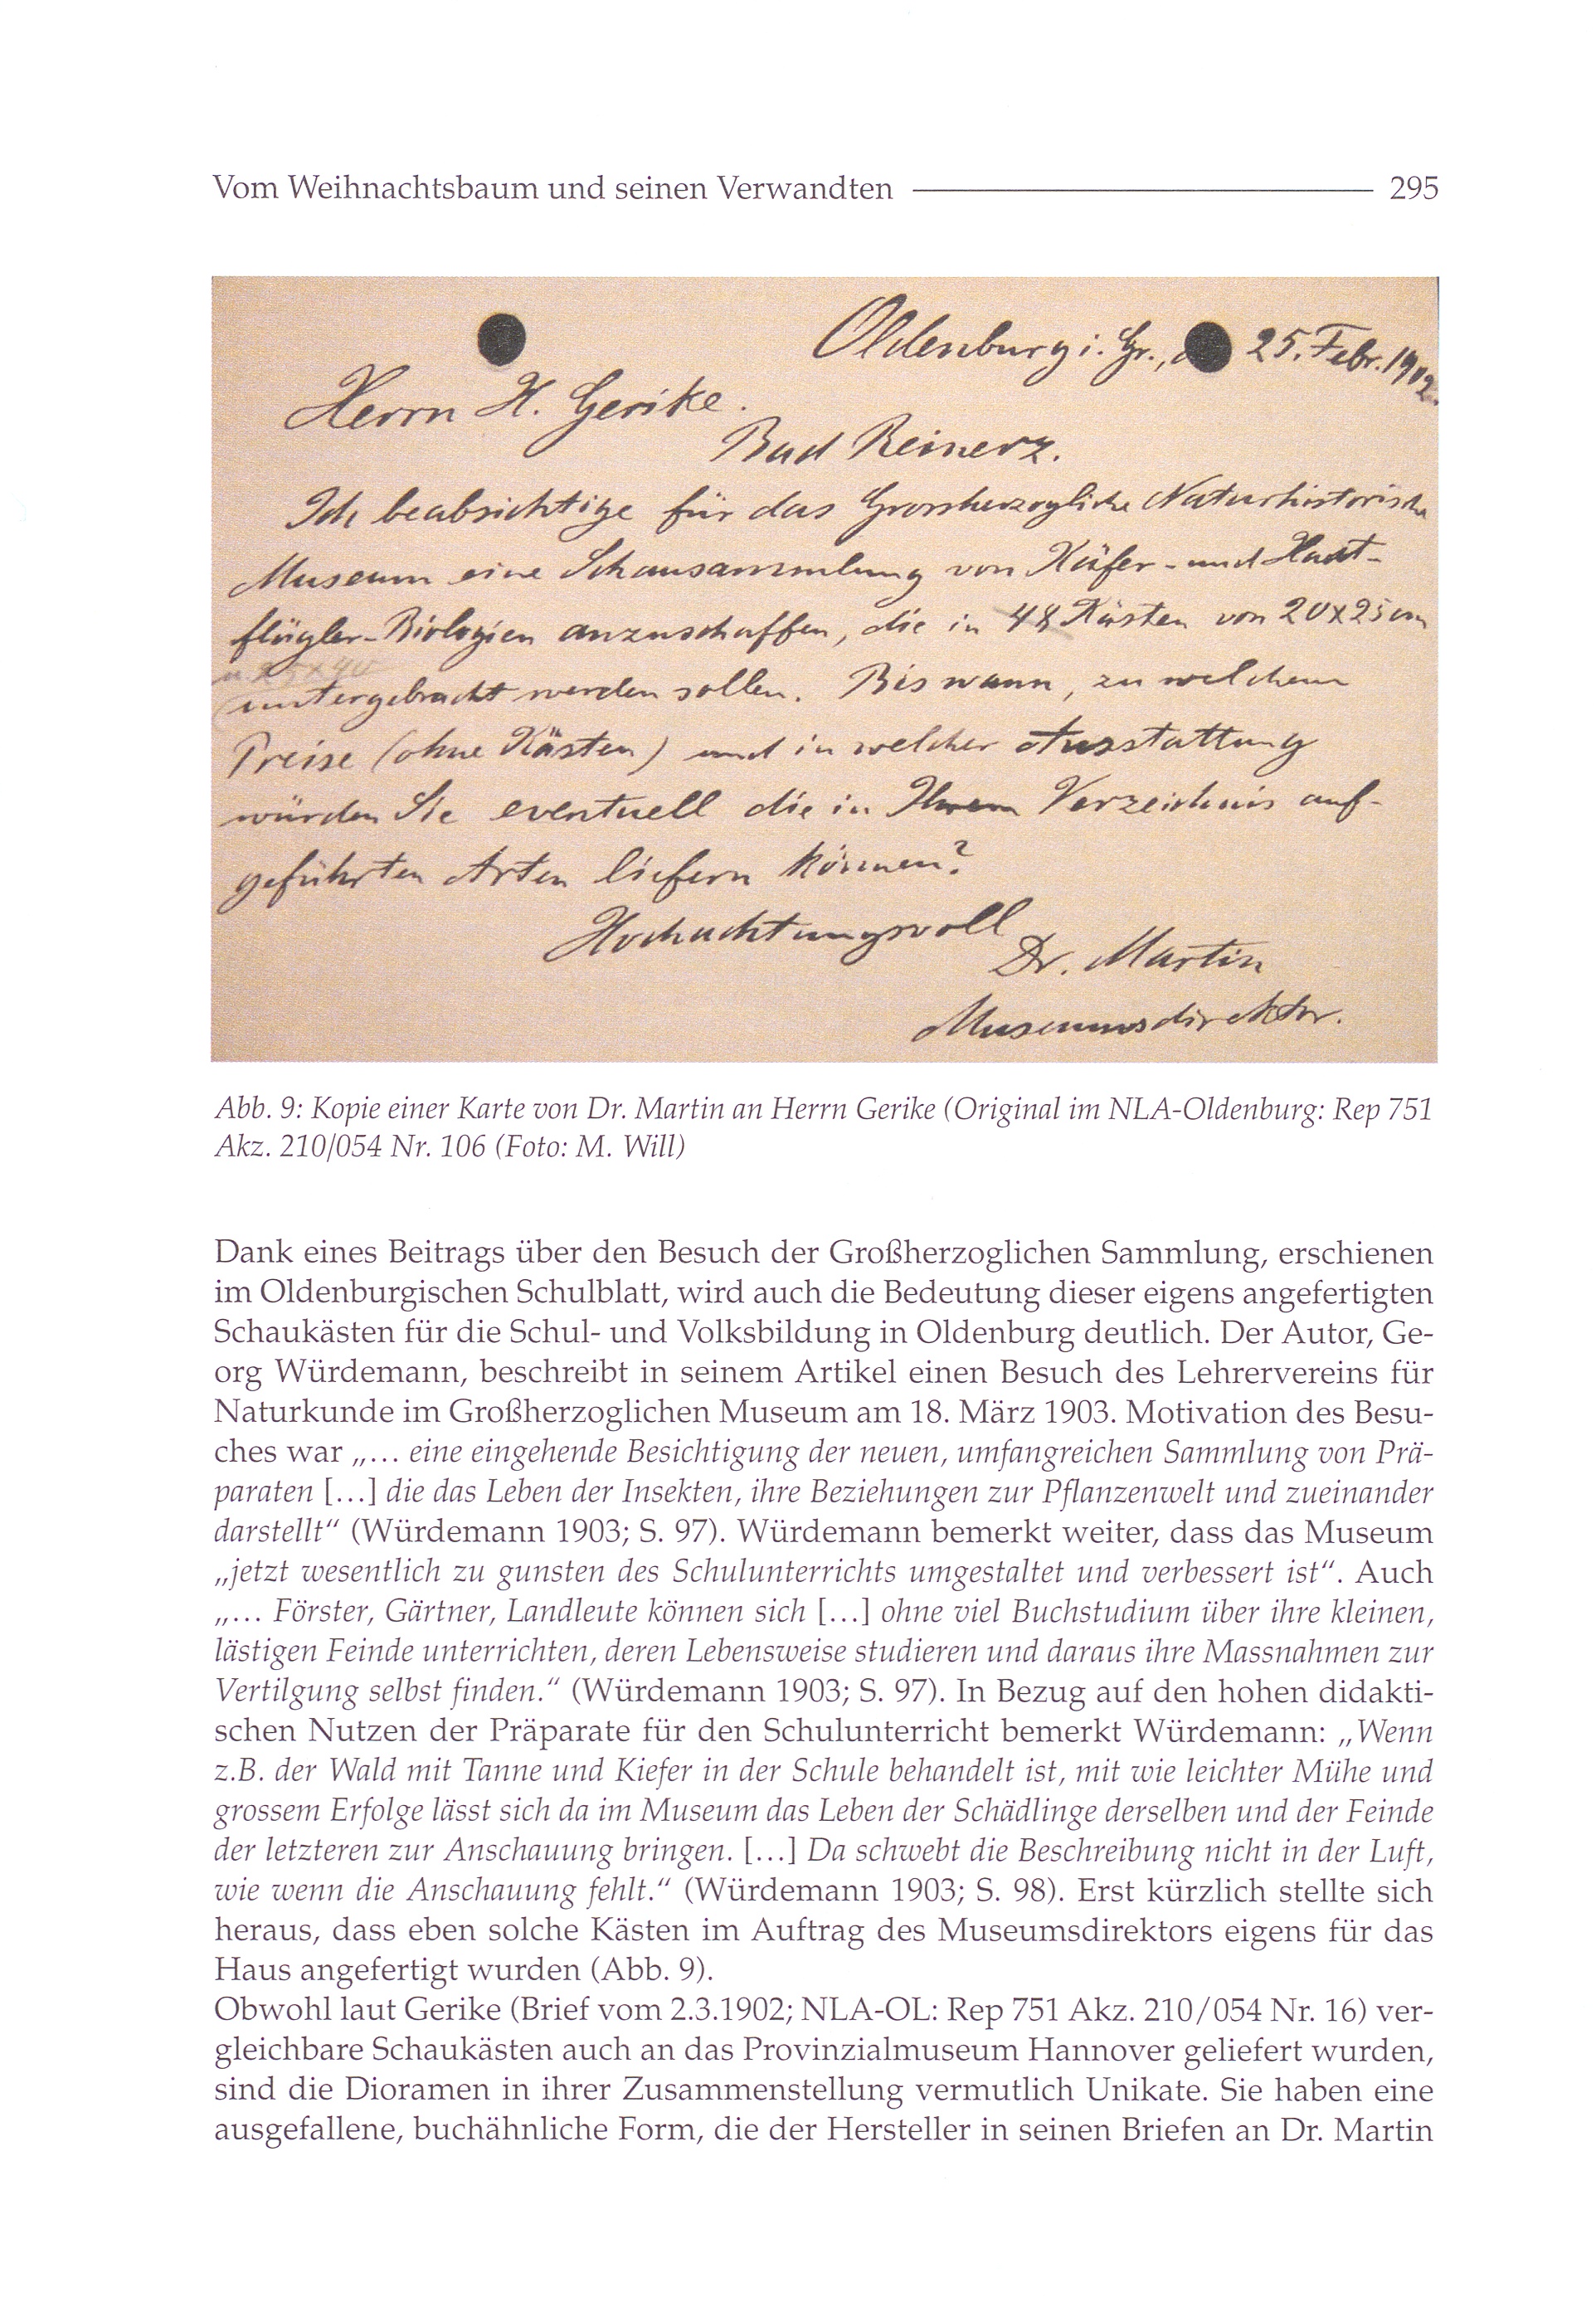 Vom Weihnachtsbaum und seinen Verwandten 295
Oldenburg i. Gr., d 25. Febr. 1902.
Herrn H. Gerike.
Bad Reinerz.
Ich beabsichtige für das Grossherzogliche Naturhistorische
Museum eine Schausammlung von Käfer- und Haut-
flügler-Biologien anzuschaffen, die in 48 Kästen von 20x25 cm
u. 25x40
untergebracht werden sollen. Bis wann, zu welchem
Preise (ohne Kästen) und in welcher Ausstattung
würden Sie eventuell die in Ihrem Verzeichnis auf-
geführten Arten liefern können?
Hochachtungsvoll
Dr. Martin
Museumsdirektor.
Abb. 9: Kopie einer Karte von Dr. Martin an Herrn Gerike (Original im NLA-Oldenburg: Rep 751
Akz. 210/054 Nr. 106 (Foto: M. Will)
Dank eines Beitrags über den Besuch der Großherzoglichen Sammlung, erschienen
im Oldenburgischen Schulblatt, wird auch die Bedeutung dieser eigens angefertigten
Schaukästen für die Schul- und Volksbildung in Oldenburg deutlich. Der Autor, Ge-
org Würdemann, beschreibt in seinem Artikel einen Besuch des Lehrervereins für
Naturkunde im Großherzoglichen Museum am 18. März 1903. Motivation des Besu-
ches war „… eine eingehende Besichtigung der neuen, umfangreichen Sammlung von Prä-
paraten […] die das Leben der Insekten, ihre Beziehungen zur Pflanzenwelt und zueinander
darstellt“ (Würdemann 1903; S. 97). Würdemann bemerkt weiter, dass das Museum
„jetzt wesentlich zu gunsten des Schulunterrichts umgestaltet und verbessert ist“. Auch
„… Förster, Gärtner, Landleute können sich […] ohne viel Buchstudium über ihre kleinen,
lästigen Feinde unterrichten, deren Lebensweise studieren und daraus ihre Massnahmen zur
Vertilgung selbst finden.“ (Würdemann 1903; S. 97). In Bezug auf den hohen didakti-
schen Nutzen der Präparate für den Schulunterricht bemerkt Würdemann: „Wenn
z.B. der Wald mit Tanne und Kiefer in der Schule behandelt ist, mit wie leichter Mühe und
grossem Erfolge lässt sich da im Museum das Leben der Schädlinge derselben und der Feinde
der letzteren zur Anschauung bringen. […] Da schwebt die Beschreibung nicht in der Luft,
wie wenn die Anschauung fehlt.“ (Würdemann 1903; S. 98). Erst kürzlich stellte sich
heraus, dass eben solche Kästen im Auftrag des Museumsdirektors eigens für das
Haus angefertigt wurden (Abb. 9).
Obwohl laut Gerike (Brief vom 2.3.1902; NLA-OL: Rep 751 Akz. 210/054 Nr. 16) ver-
gleichbare Schaukästen auch an das Provinzialmuseum Hannover geliefert wurden,
sind die Dioramen in ihrer Zusammenstellung vermutlich Unikate. Sie haben eine
ausgefallene, buchähnliche Form, die der Hersteller in seinen Briefen an Dr. Martin